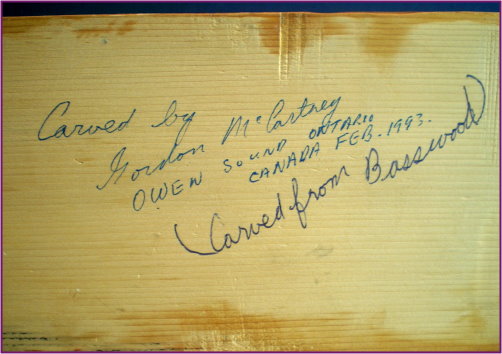 Carved by
Gordon McCartney
OWEN SOUND ONTARIO
CANADA FEB. 1993.
(Carved from Basswood)